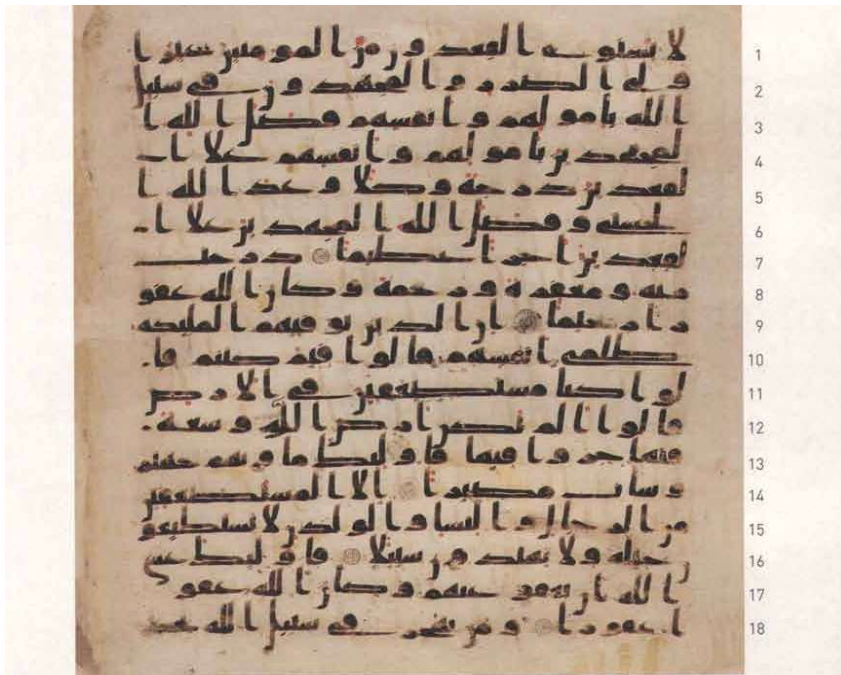 1 لا يستوى القعدون من المومنين غير ا
2 ولى الضرر والمجهدون فى سبيل
3 الله بامولهم وانفسهم فضل الله ا
4 لمجهدين بامولهم وانفسهم علا ا
5 لقعدين درجة وكلا وعد الله ا
6 لحسنى وفضل الله المجهدين علا ا
7 لقعدين اجرا عظيما درجت
8 منه ومغفرة ورحمة وكان الله غفو
9 را رحيما ان الذين توفيهم المليكه
10 ظلمى انفسهم قالوا فيم كنتم قا
11 لوا كنا مستضعفين فى الارض
12 قالوا الم تكن ارض الله وسعة
13 فتهجروا فيها فاوليك ماويهم جهنم
14 وسات مصيرا الا المستضعفين
15 من الرجال والنسا والولدن لا يستطيعو
16 ن حيله ولا يهتدون سبيلا فاوليك عسى
17 الله ان يعفو عنهم وكان الله عفو
18 ا غفورا ومن يهجر فى سبيل الله يجد